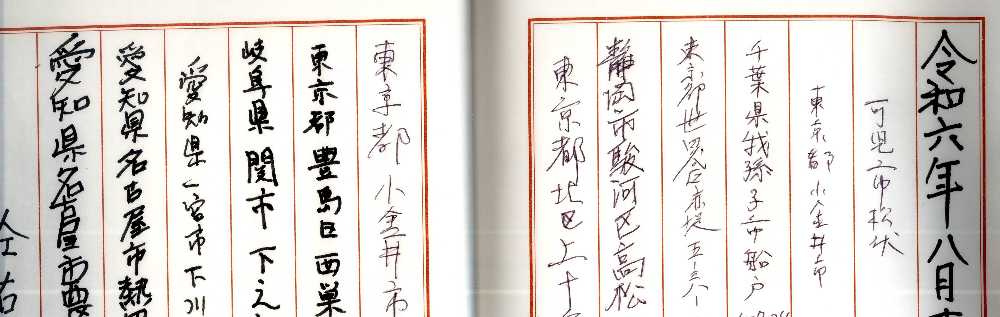 令和六年八月
可児市松伏
東京都小金井市
千葉県我孫子市船戸
東京都世田谷区赤堤五三
静岡市駿河区高松
東京都北区上十
東京都小金井市
東京都豊島区西巣
岐阜県関市下之
愛知県一宮市下川
愛知県名古屋市熱
愛知県名古屋市西